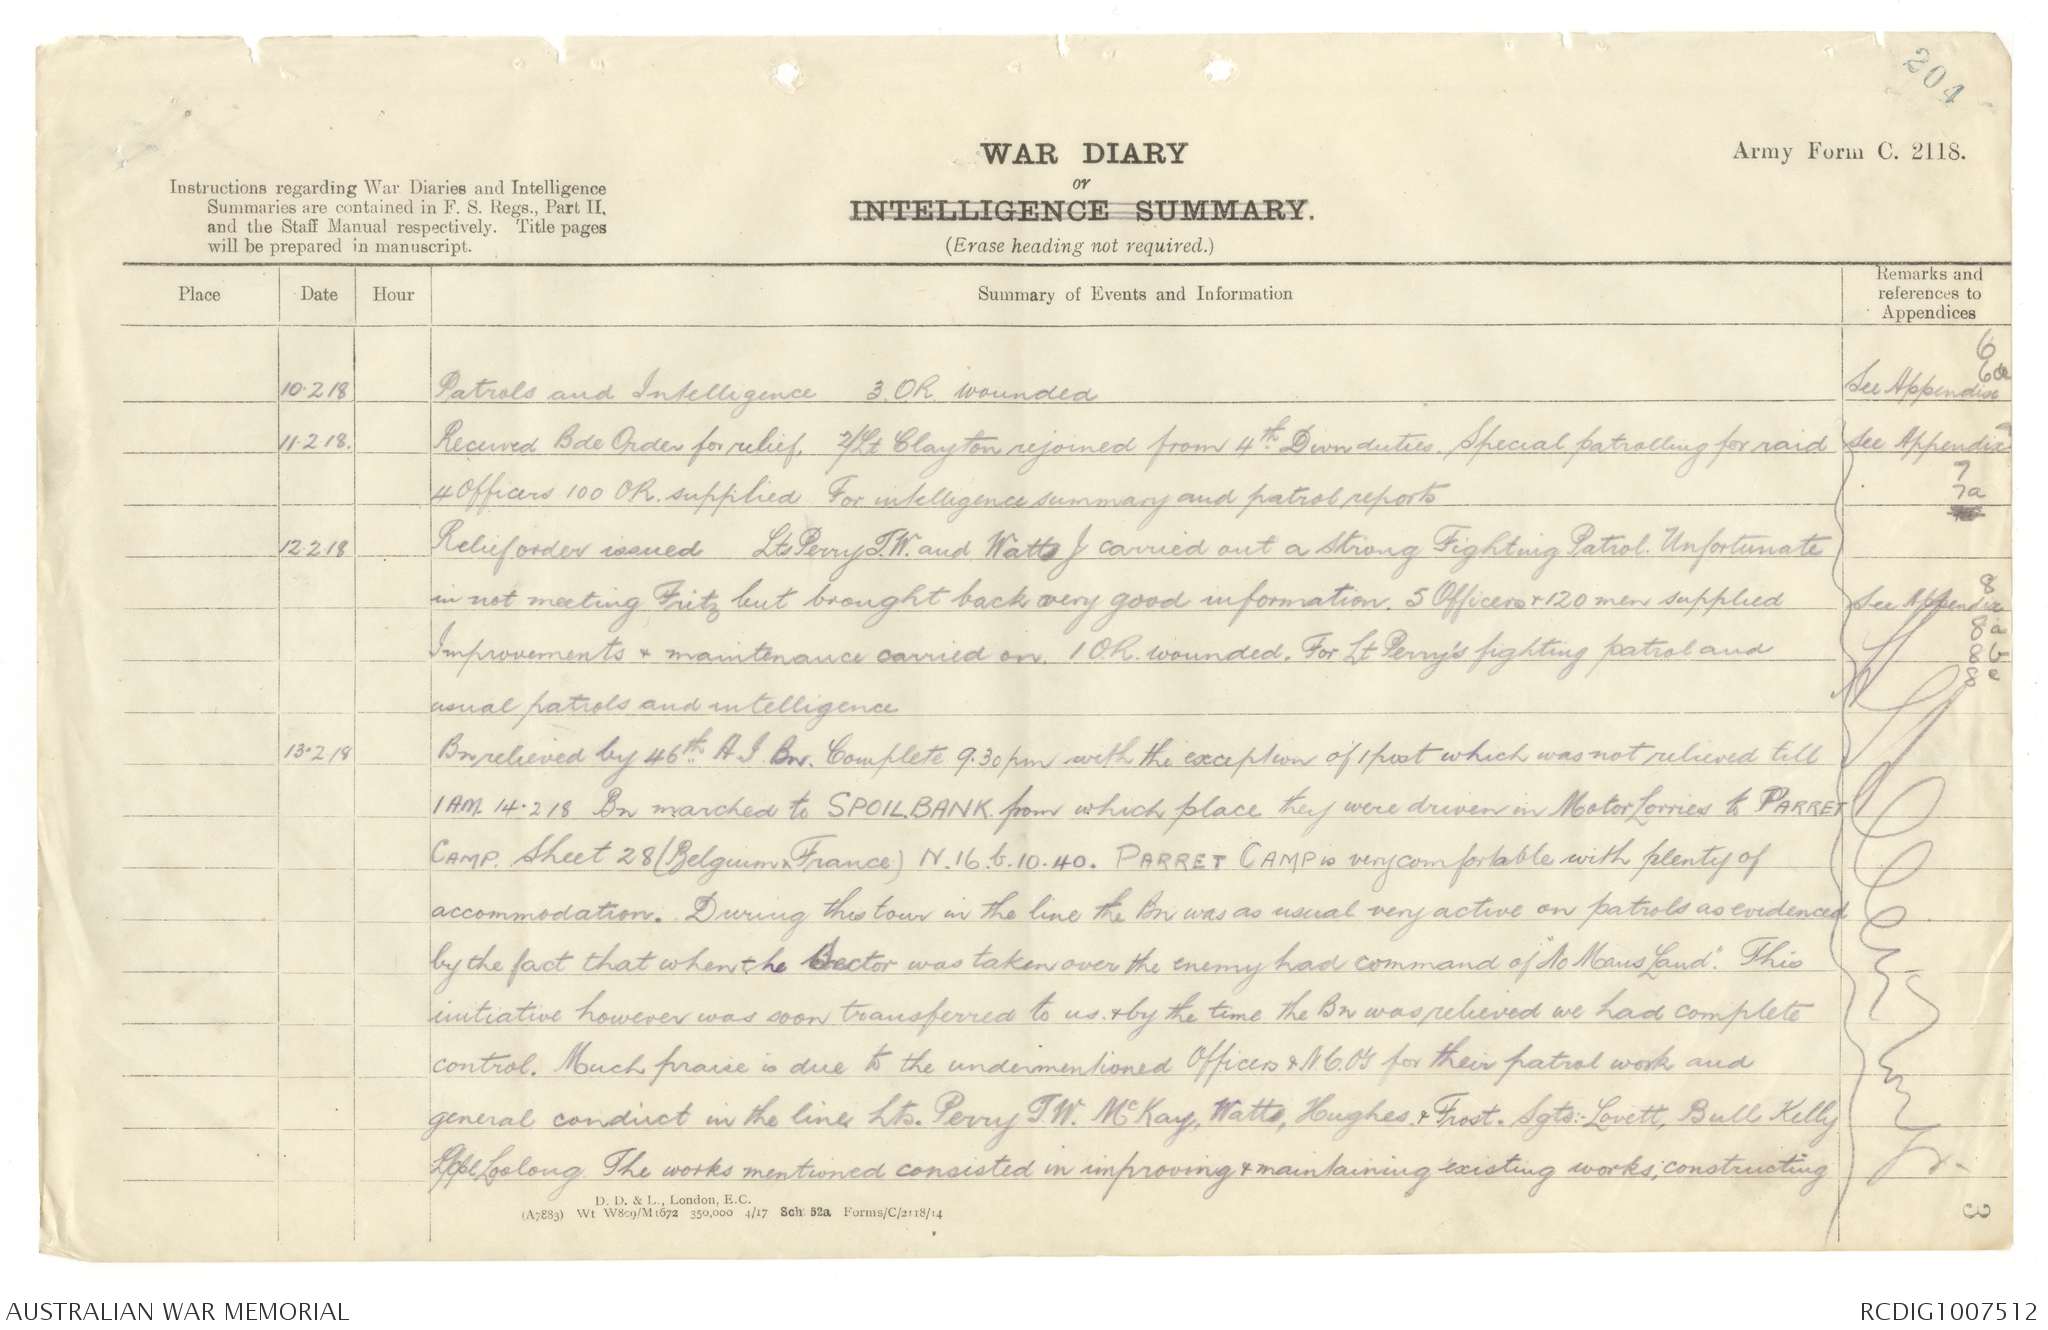 204
WAR DIARY
or
INTELLIGENCE SUMMARY.
(Erase heading not required.)
Army Form C. 2118.
Instructions regarding War Diaries and Intelligence
Summaries are contained in F. S. Regs., Part II,
and the Staff Manual respectively. Title pages
will be prepared in manuscript.
Place Date Hour Summary of Events and Information Remarks and
references to
Appendices
6
6a
10.2.18 Patrols and Intelligence 3 O.R. wounded See Appendix
11.2.18. Received Bde Order for relief. 2/Lt Clayton rejoined from 4th Divn duties. Special patrolling for raid See Appendix
7
4 Officers 100 OR. supplied For intelligence summary and patrol reports 7a
12.2.18 Relief order issued Lts Perry T.W. and Watts J carried out a strong Fighting Patrol. Unfortunate
8
in not meeting Fritz but brought back very good information. 5 Officers + 120 men supplied See Appendix
8a
Improvements & maintenance carried on. 1 O.R. wounded. For Lt Perry's fighting patrol and 8b
8c
usual patrols and intelligence
13.2.18 Bn relieved by 46th A.I. Bn. Complete 9.30pm with the exception of 1 post which was not relieved till
1 AM 14.2.18 Bn marched to SPOIL BANK from which place they were driven in Motor Lorries to PARRET
CAMP. Sheet 28 (Belgium & France) N.16.b.10.40. PARRET CAMP is very comfortable with plenty of
accommodation. During this tour in the line the Bn was as usual very active on patrols as evidenced
by the fact that when the Sector was taken over the enemy had command of "No Mans Land". This
initiative however was soon transferred to us. & by the time the Bn was relieved we had complete
control. Much praise is due to the undermentioned Officers & N.C.O's for their patrol work and
general conduct in the line Lts. Perry T.W. McKay, Watts, Hughes & Frost. Sgts:- Lovett, Bull Kelly
The works mentioned consisted in improving & maintaining existing works, constructing
D. D. & L., London, E.C.
(A7883) Wt W809/M1672 350,000 4/17 Sch 52a Forms/C/2118/14
3
AUSTRALIAN WAR MEMORIAL
RCDIG1007512